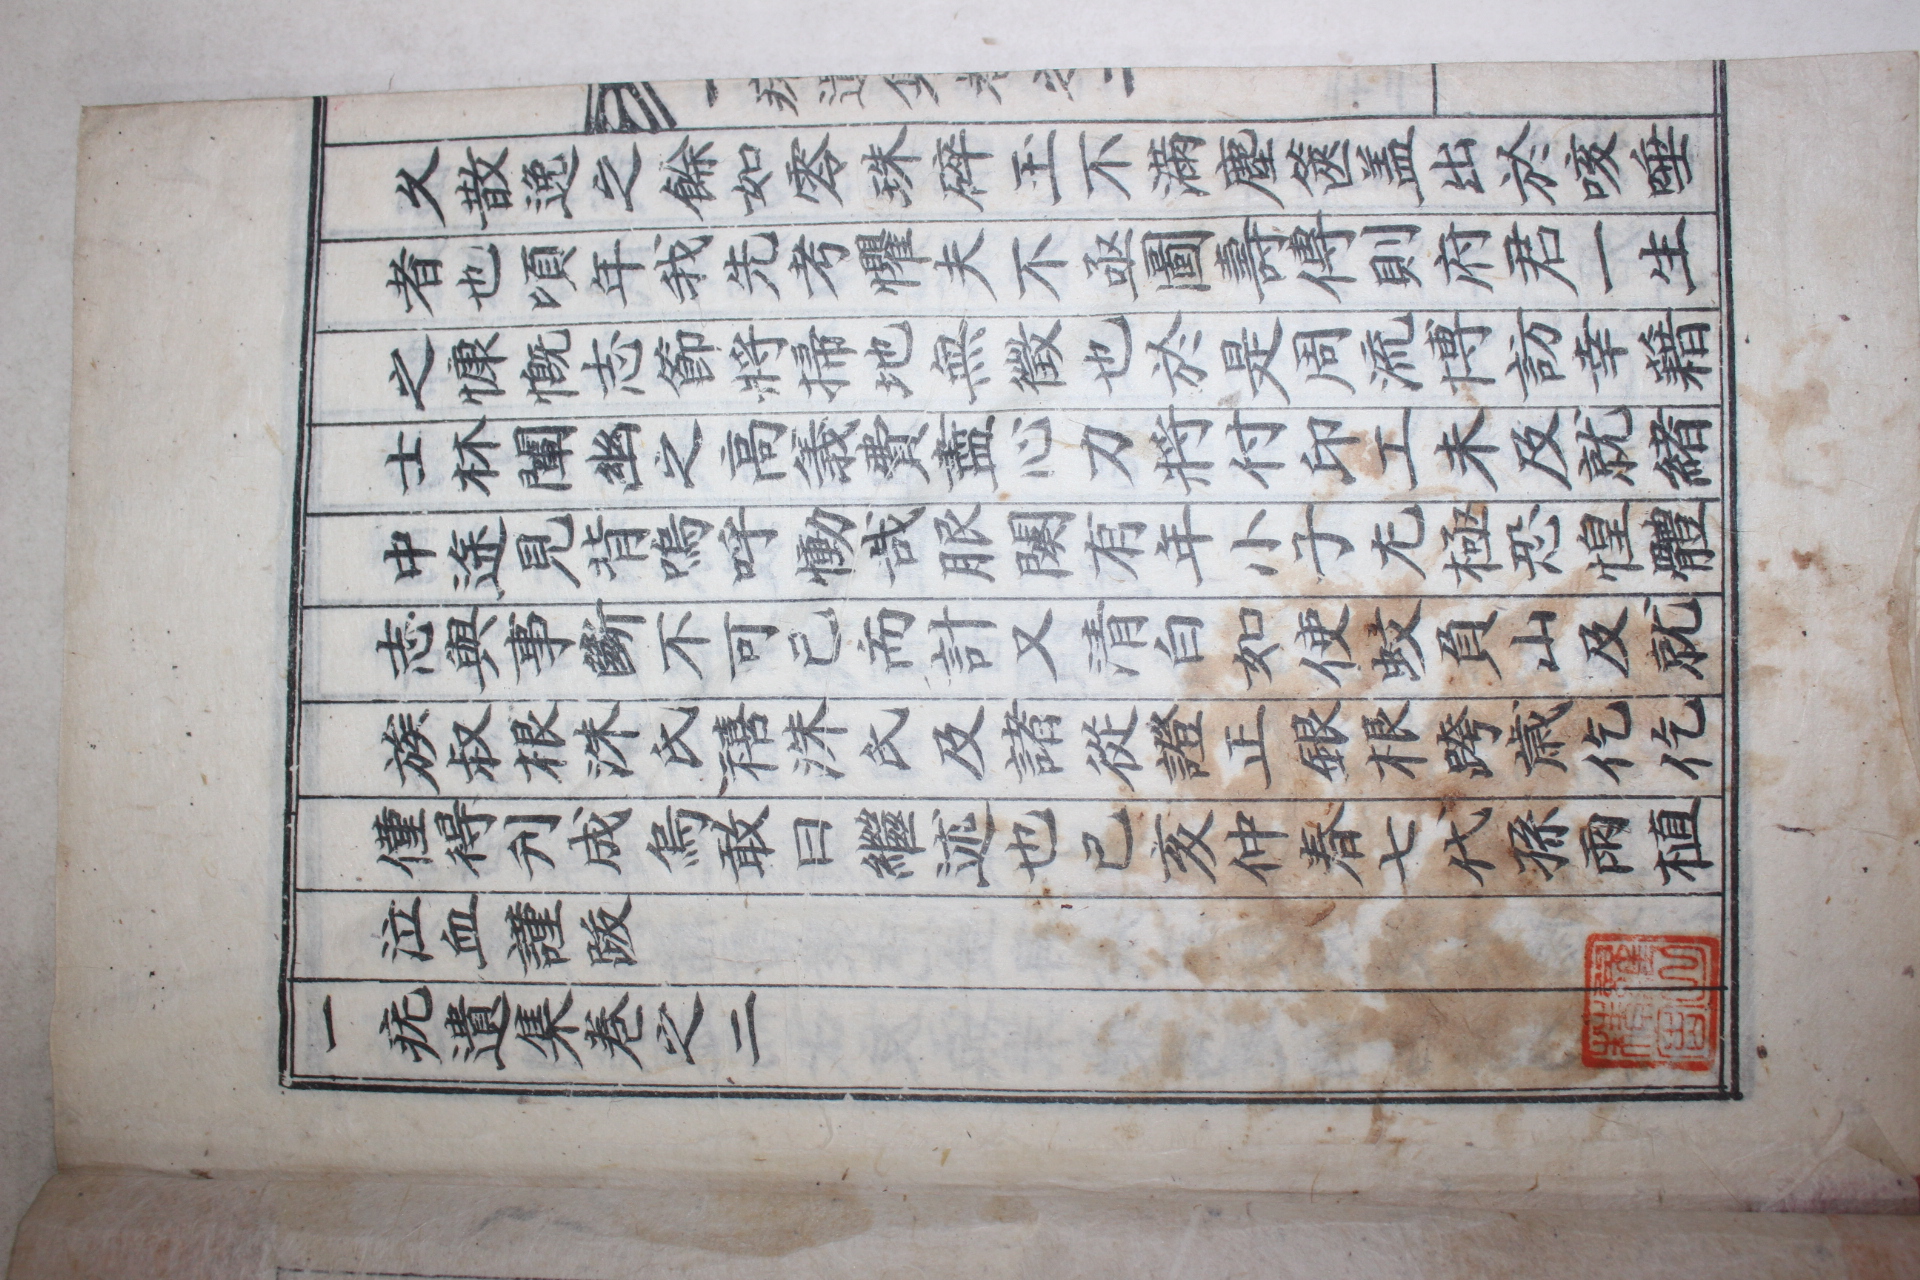 久散逸之餘如零珠碎玉不滿塵篋盖出於咳唾
者也頃年我先考懼夫不亟圖壽傳則府君一生
之慷慨志節將掃地無徵也於是周流博訪幸籍
士林闡幽之高義費盡心力將付印工未及就緖
中途見背嗚呼慟哉服闋有年小子尤極恐惶體
志與事斷不可已而計又淸白如使蚊負山及就
族叔根洙氏禧洙氏及諸從證正銀根跨歲仡仡
僅得刋成烏敢曰繼述也己亥仲春七代孫雨植
泣血謹跋
一疣遺集卷之二
一疣遺集卷之二